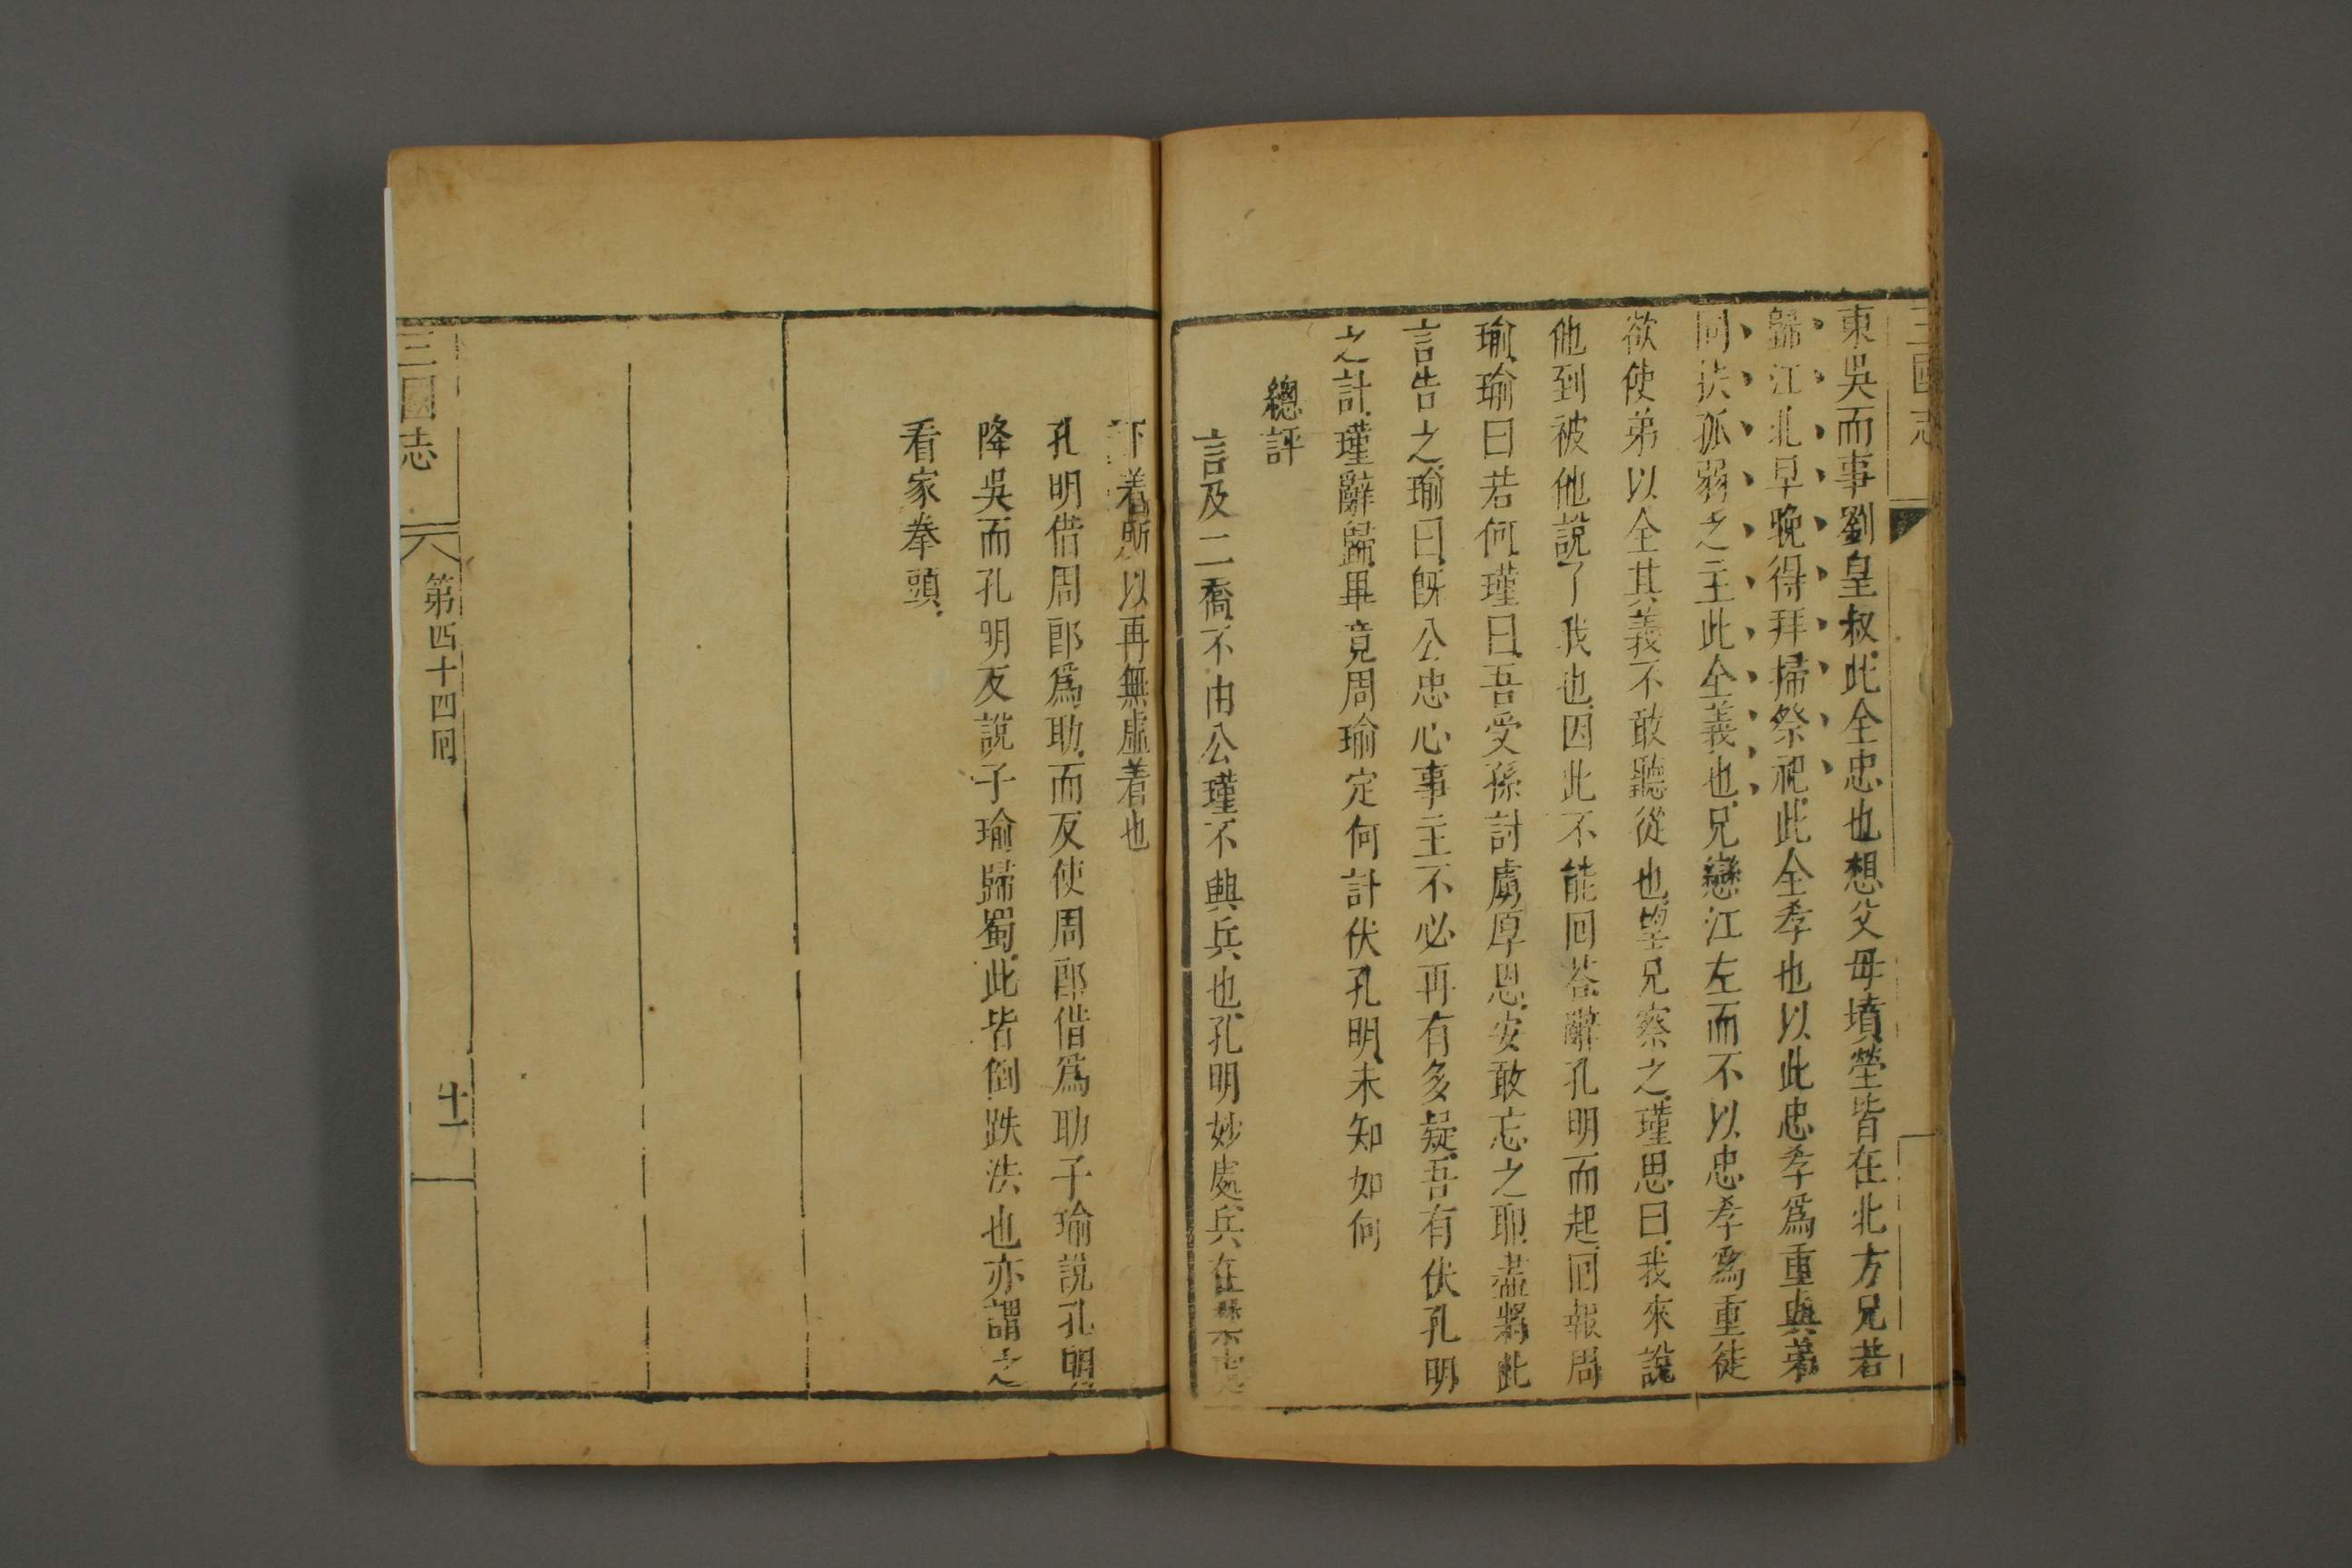 三國志
東吳而事劉皇叔此全忠也想父母墳塋皆在北方兄若
歸江北早晚得拜掃祭祀此全孝也以此忠孝爲重與弟
同扶孤弱之主此全義也兄戀江左而不以忠孝爲重徒
欲使弟以全其義不敢聽從也望兄察之瑾思曰我來說
他到被他說了我也因此不能回荅辭孔明而起回報周
瑜瑜曰若何瑾曰吾受孫討虜厚恩安敢忘之耶盡將此
言告之瑜曰旣公忠心事主不必再有多疑吾有伏孔明
之計瑾辭歸畢竟周瑜定何計伏孔明未知如何
總評
言及二喬不由公瑾不興兵也孔明妙處兵在
下着所以再無虛着也
孔明借周郎爲助而反使周郎偕爲助子瑜說孔明
降吳而孔明反說子瑜歸蜀此皆倒跌法也亦謂之
看家拳頭
三國志
第四十四囘
十一